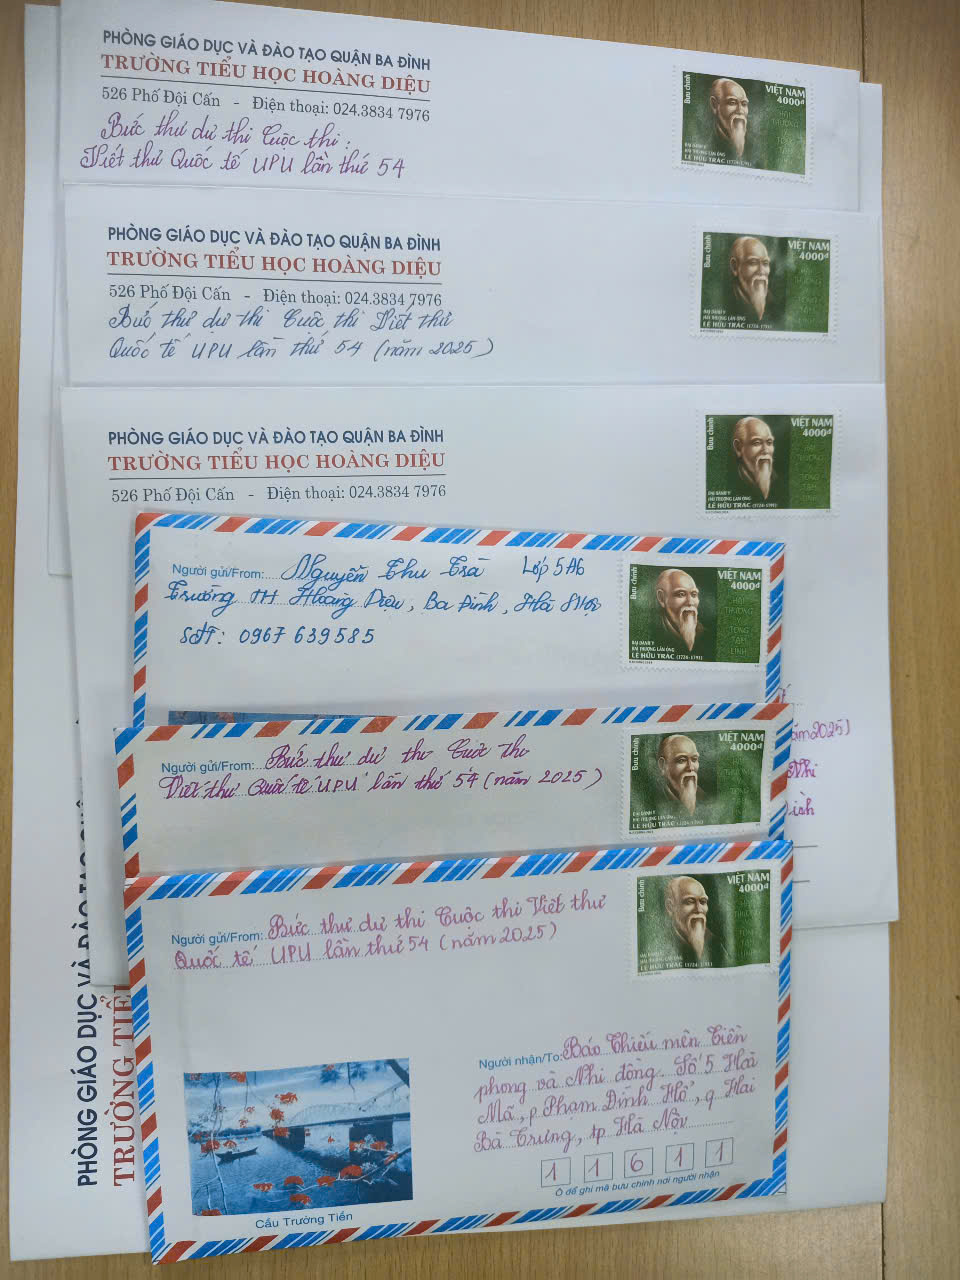 PHÒNG GIÁO DỤC VÀ ĐÀO TẠO QUẬN BA ĐÌNH
TRƯỜNG TIỂU HỌC HOÀNG DIỆU
526 Phố Đội Cấn - Điện thoại: 024.3834 7976
Bức thư dự thi Cuộc thi:
Viết thư Quốc tế UPU lần thứ 54
Bưu chính
VIỆT NAM
4000đ
HẢI
THƯỢNG
Y
TÔNG
TÂM
LĨNH
ĐẠI DANH Y
HẢI THƯỢNG LÃN ÔNG
LÊ HỮU TRÁC (1724-1791)
PHÒNG GIÁO DỤC VÀ ĐÀO TẠO QUẬN BA ĐÌNH
TRƯỜNG TIỂU HỌC HOÀNG DIỆU
526 Phố Đội Cấn - Điện thoại: 024.3834 7976
Bức thư dự thi Cuộc thi Viết thư
Quốc tế UPU lần thứ 54 (năm 2025)
Bưu chính
VIỆT NAM
4000đ
HẢI
THƯỢNG
Y
TÔNG
TÂM
LĨNH
ĐẠI DANH Y
HẢI THƯỢNG LÃN ÔNG
LÊ HỮU TRÁC (1724-1791)
PHÒNG GIÁO DỤC VÀ ĐÀO TẠO QUẬN BA ĐÌNH
TRƯỜNG TIỂU HỌC HOÀNG DIỆU
526 Phố Đội Cấn - Điện thoại: 024.3834 7976
Bưu chính
VIỆT NAM
4000đ
HẢI
THƯỢNG
Y
TÔNG
TÂM
LĨNH
ĐẠI DANH Y
HẢI THƯỢNG LÃN ÔNG
LÊ HỮU TRÁC (1724-1791)
Người gửi/From: Nguyễn Thu Trà Lớp 5A6
Trường TH Hoàng Diệu, Ba Đình, Hà Nội
SĐT: 0967 639 585
Bưu chính
VIỆT NAM
4000đ
HẢI
THƯỢNG
Y
TÔNG
TÂM
LĨNH
ĐẠI DANH Y
HẢI THƯỢNG LÃN ÔNG
LÊ HỮU TRÁC (1724-1791)
năm 2025)
Nhi
Người gửi/From: Bức thư dự thi Cuộc thi
Viết thư Quốc tế UPU lần thứ 54 (năm 2025)
Bưu chính
VIỆT NAM
4000đ
ĐẠI DANH Y
HẢI THƯỢNG LÃN ÔNG
LÊ HỮU TRÁC (1724-1791)
Người gửi/From: Bức thư dự thi Cuộc thi Viết thư
Quốc tế UPU lần thứ 54 (năm 2025)
Bưu chính
VIỆT NAM
4000đ
ĐẠI DANH Y
HẢI THƯỢNG LÃN ÔNG
LÊ HỮU TRÁC (1724-1791)
Người nhận/To: Báo Thiếu niên Tiền
phong và Nhi đồng. Số 5 Hoà
Mã, p Phạm Đình Hổ, q Hai
Bà Trưng, tp Hà Nội
1 1 6 1 1
Ô để ghi mã bưu chính nơi người nhận
Cầu Trường Tiền
PHÒNG GIÁO DỤC VÀ ĐÀO TẠO
TRƯỜNG TIỂU